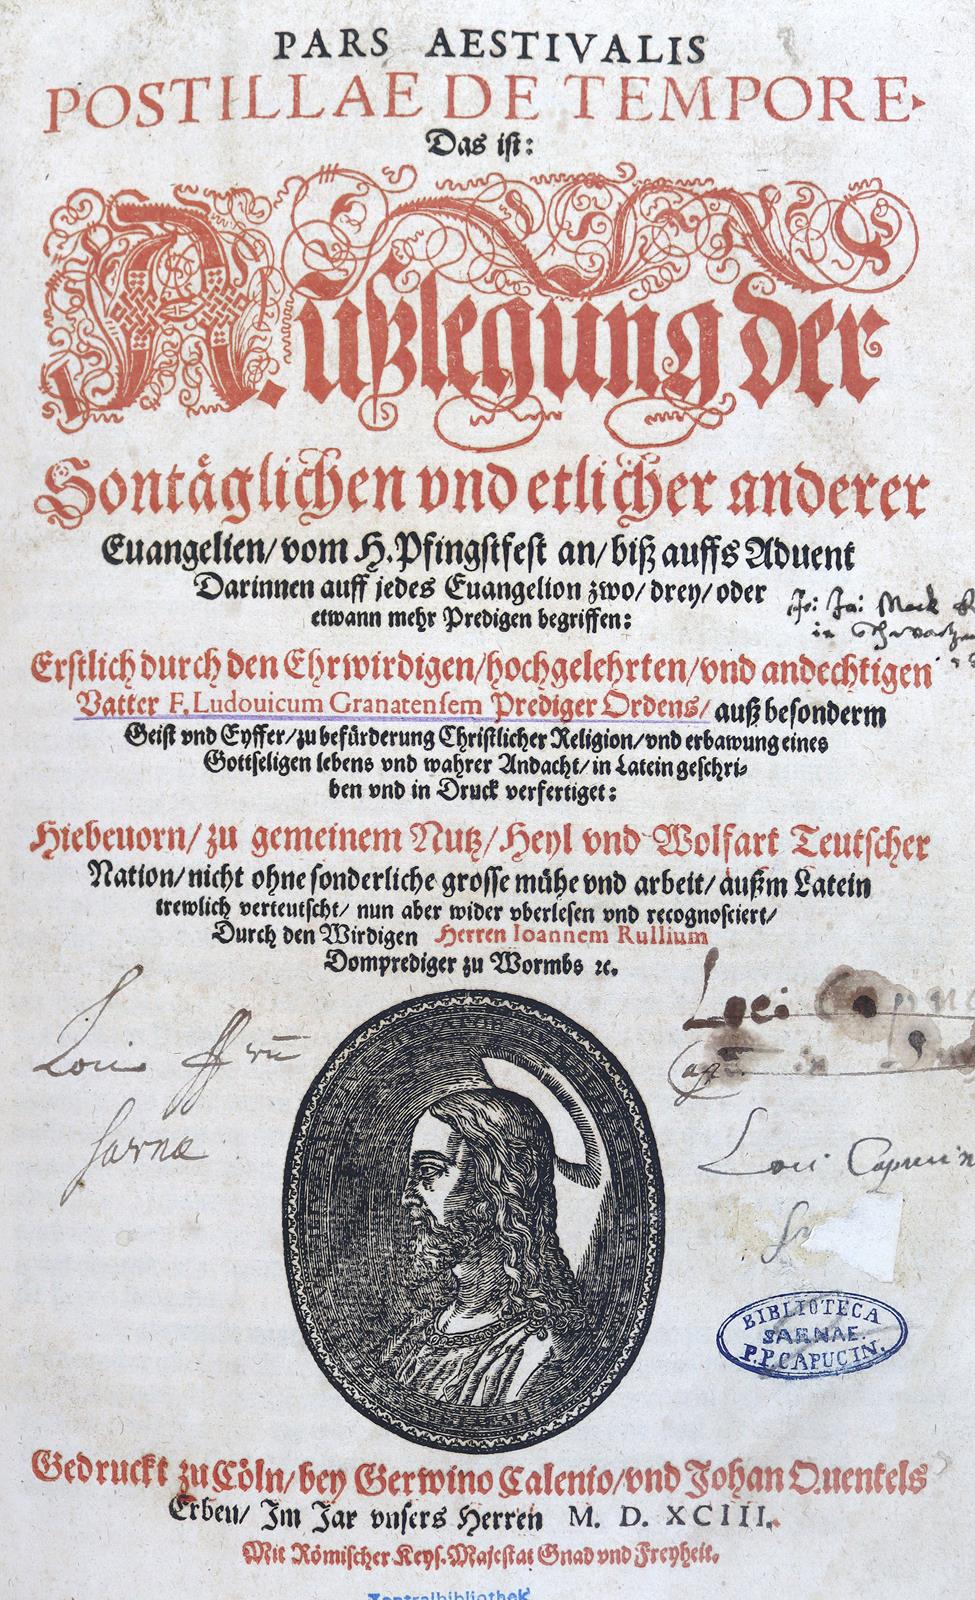 PARS AESTIVALIS
POSTILLAE DE TEMPORE.
Das ist:
Außlegung der
Sontäglichen vnd etlicher anderer
Euangelien/ vom H. Pfingstfest an/ biß auffs Aduent
Darinnen auff jedes Euangelion zwo/ drey/ oder
etwann mehr Predigen begriffen:
Erstlich durch den Ehrwirdigen/ hochgelehrten/ vnd andechtigen
Vatter F. Ludouicum Granatensem Prediger Ordens/ auß besonderm
Geist vnd Eyffer/ zu befürderung Christlicher Religion/ vnd erbawung eines
Gottseligen lebens vnd wahrer Andacht/ in Latein geschri-
ben vnd in Druck verfertiget:
Hiebeuorn/ zu gemeinem Nutz/ Heyl vnd Wolfart Teutscher
Nation/ nicht ohne sonderliche grosse mühe vnd arbeit/ außm Latein
trewlich verteutscht/ nun aber wider vberlesen vnd recognosciert/
Durch den Wirdigen Herren Ioannem Rullium
Domprediger zu Wormbs ꝛc.
Loci
Sarnae
Loci Capucin
BIBLIOTECA
SARNAE.
P.P. CAPUCIN.
Gedruckt zu Cöln/ bey Gerwino Calenio/ vnd Johan Quentels
Erben/ Im Jar vnsers Herren M. D. XCIII.
Mit Römischer Keys. Majestat Gnad vnd Freyheit.
Zentralbibliothek